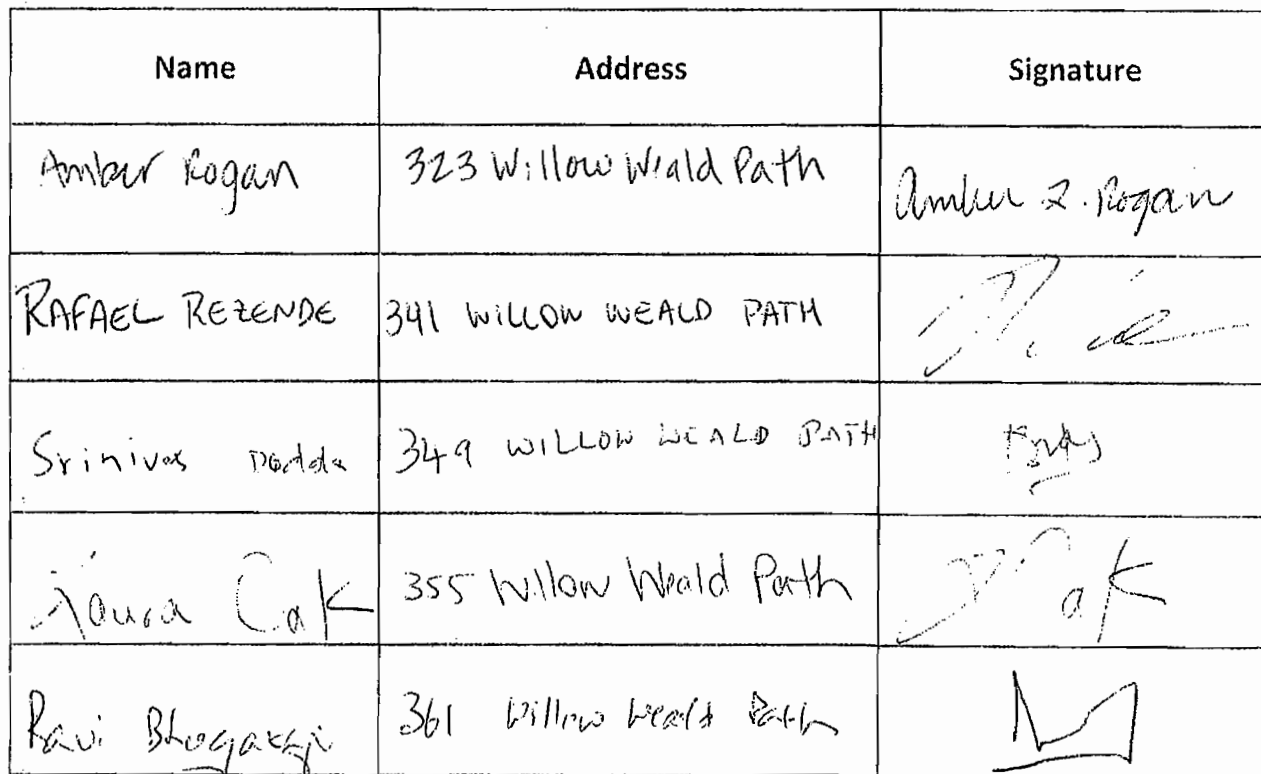 Name Address Signature
Amber Rogan 323 Willow Weald Path Amber Z. Rogan
RAFAEL REZENDE 341 WILLOW WEALD PATH
Srinivas 349 WILLOW WEALD PATH
Cak 355 Willow Weald Path Cak
Ravi 361 Willow Weald Path